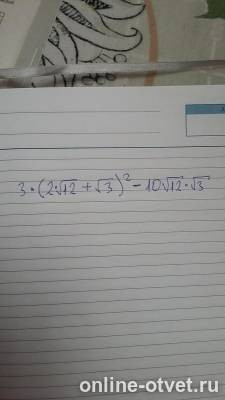 3·(2√12 + √3)² − 10√12·√3
online-otvet.ru